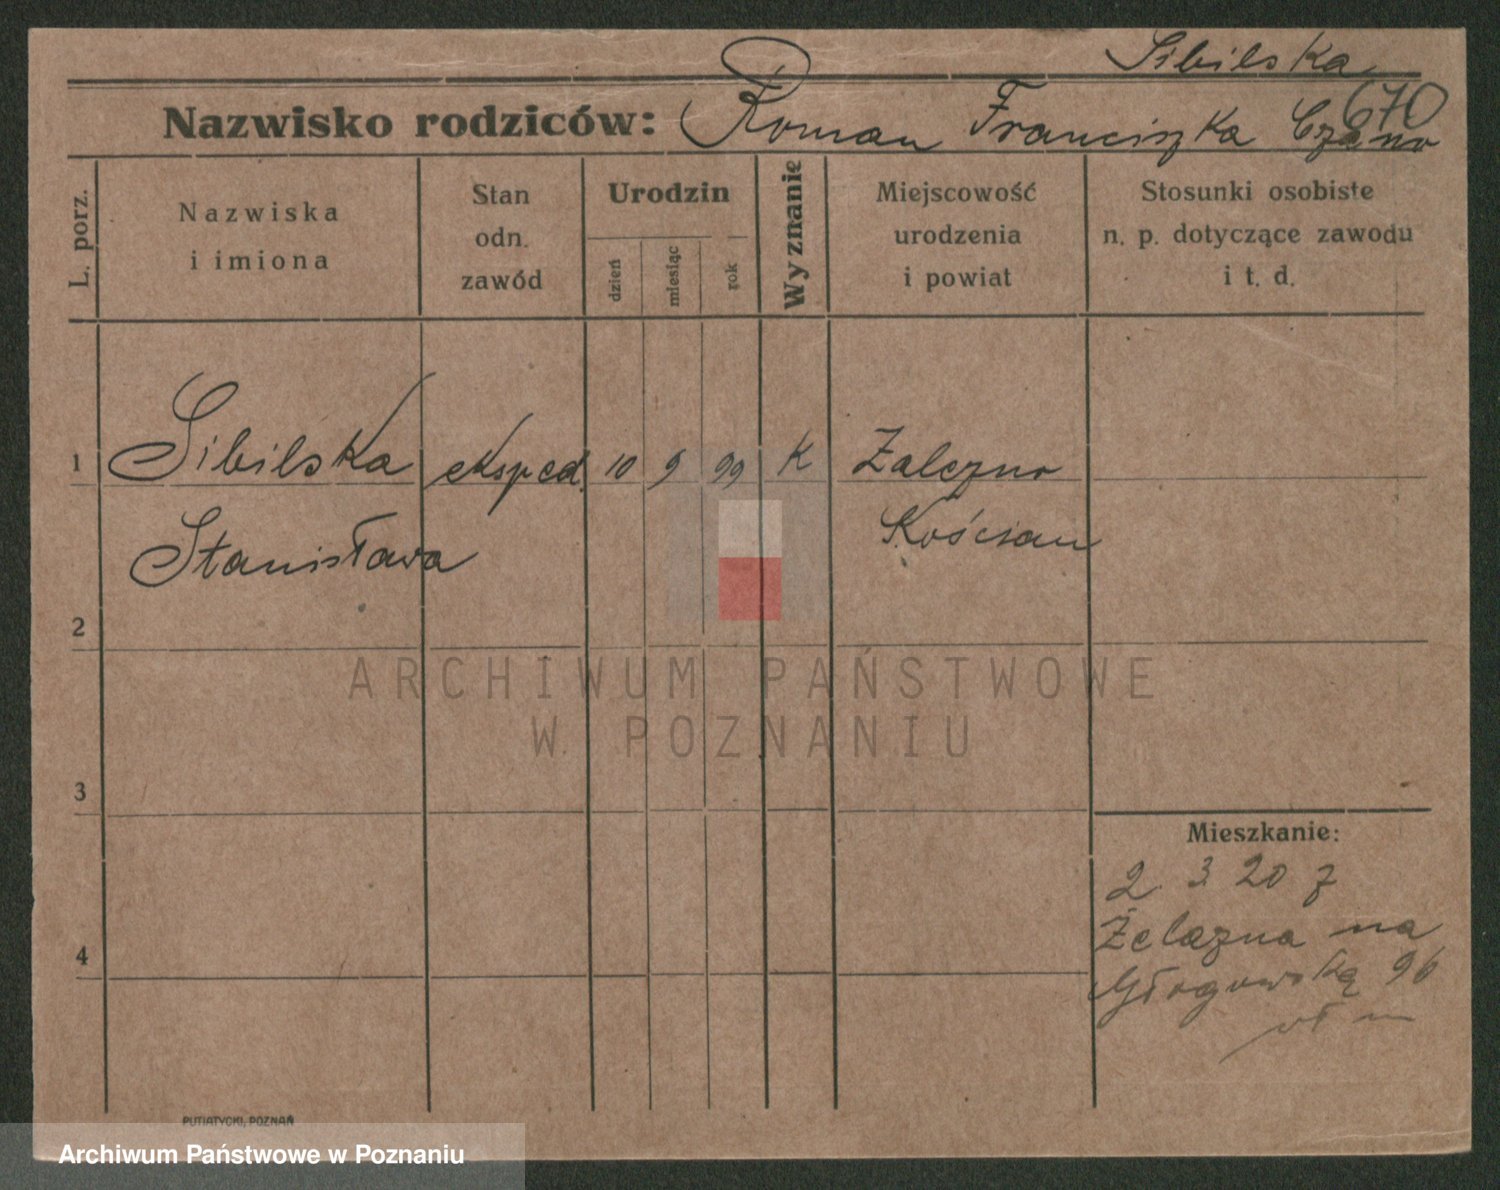 Sibilska
670
Nazwisko rodziców: Roman Franciszka
L. porz.
Nazwiska
i imiona
Stan
odn.
zawód
Urodzin
dzień
miesiąc
rok
Wyznanie
Miejscowość
urodzenia
i powiat
Stosunki osobiste
n. p. dotyczące zawodu
i t. d.
1 Sibilska eksped. 10 9 99 K Zalezno
Stanisława Kościan
2
3
4
Mieszkanie:
2. 3 20 z
Żelazna na
Głogowską 96
PUTIATYCKI, POZNAŃ
ARCHIWUM PAŃSTWOWE
W POZNANIU
Archiwum Państwowe w Poznaniu